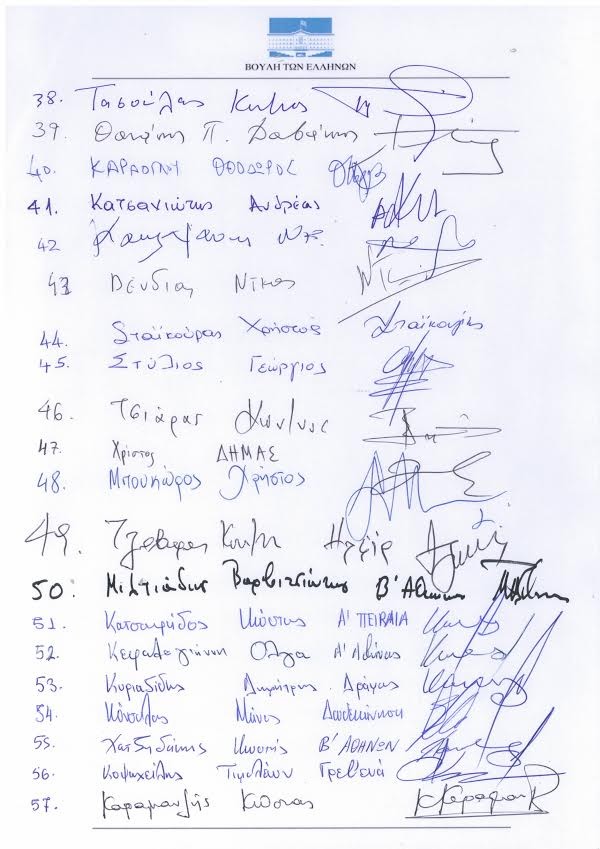 ΒΟΥΛΗ ΤΩΝ ΕΛΛΗΝΩΝ
38. Τασούλας Κων/νος
39. Θανάσης Π. Δαβάκης
40. ΚΑΡΑΟΓΛΟΥ ΘΕΟΔΩΡΟΣ
41. Κατσανιώτης Ανδρέας
42
43 Δένδιας Νίκος
44. Σταϊκούρας Χρήστος Σταϊκούρας
45. Στύλιος Γεώργιος
46. Τσιάρας Κων/νος
47. Χρίστος ΔΗΜΑΣ
48. Μπουκώρος Χρήστος
49.
50. Μιλτιάδης Βαρβιτσιώτης Β' Αθηνών
51. Κατσαφάδος Κώστας Α' ΠΕΙΡΑΙΑ
52. Κεφαλογιάννη Όλγα Α' Αθήνας
53. Κυριαζίδης Δημήτρης Δράμας
54. Κόνσολας Μάνος Δωδεκάνησα
55. Χατζηδάκης Κωστής Β' ΑΘΗΝΩΝ
56. Κοψαχείλης Τιμολέων Γρεβενά
57. Καραμανλής Κώστας